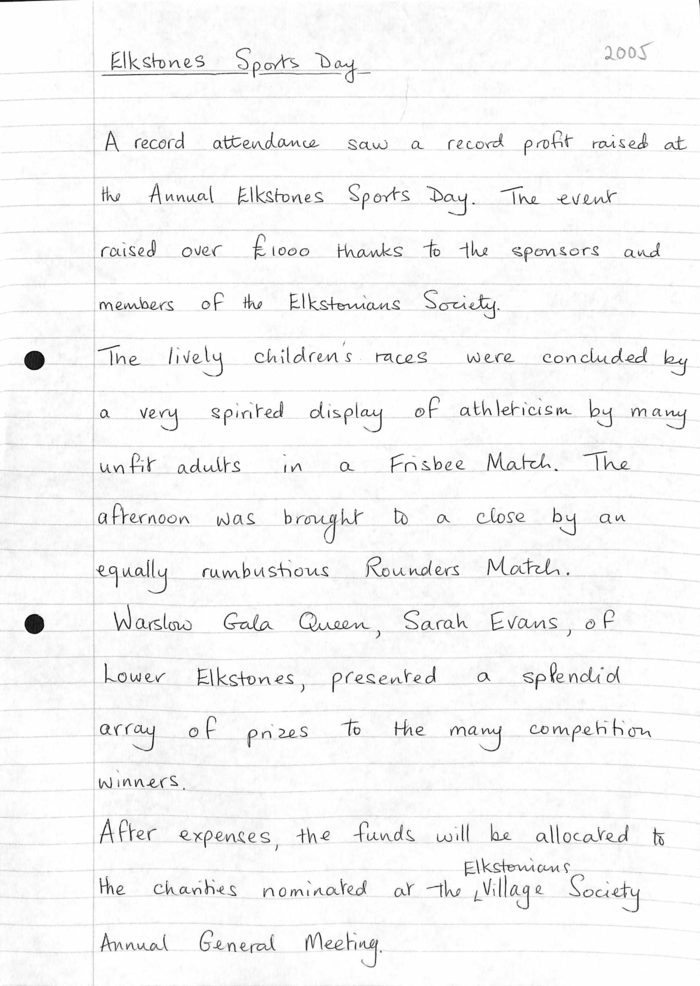 Elkstones Sports Day 2005
A record attendance saw a record profit raised at
the Annual Elkstones Sports Day. The event
raised over £1000 thanks to the sponsors and
members of the Elkstonians Society.
The lively children's races were concluded by
a very spirited display of athleticism by many
unfit adults in a Frisbee Match. The
afternoon was brought to a close by an
equally rumbustious Rounders Match.
Warslow Gala Queen, Sarah Evans, of
Lower Elkstones, presented a splendid
array of prizes to the many competition
winners.
After expenses, the funds will be allocated to
Elkstonians
the charities nominated at the Village Society
Annual General Meeting.